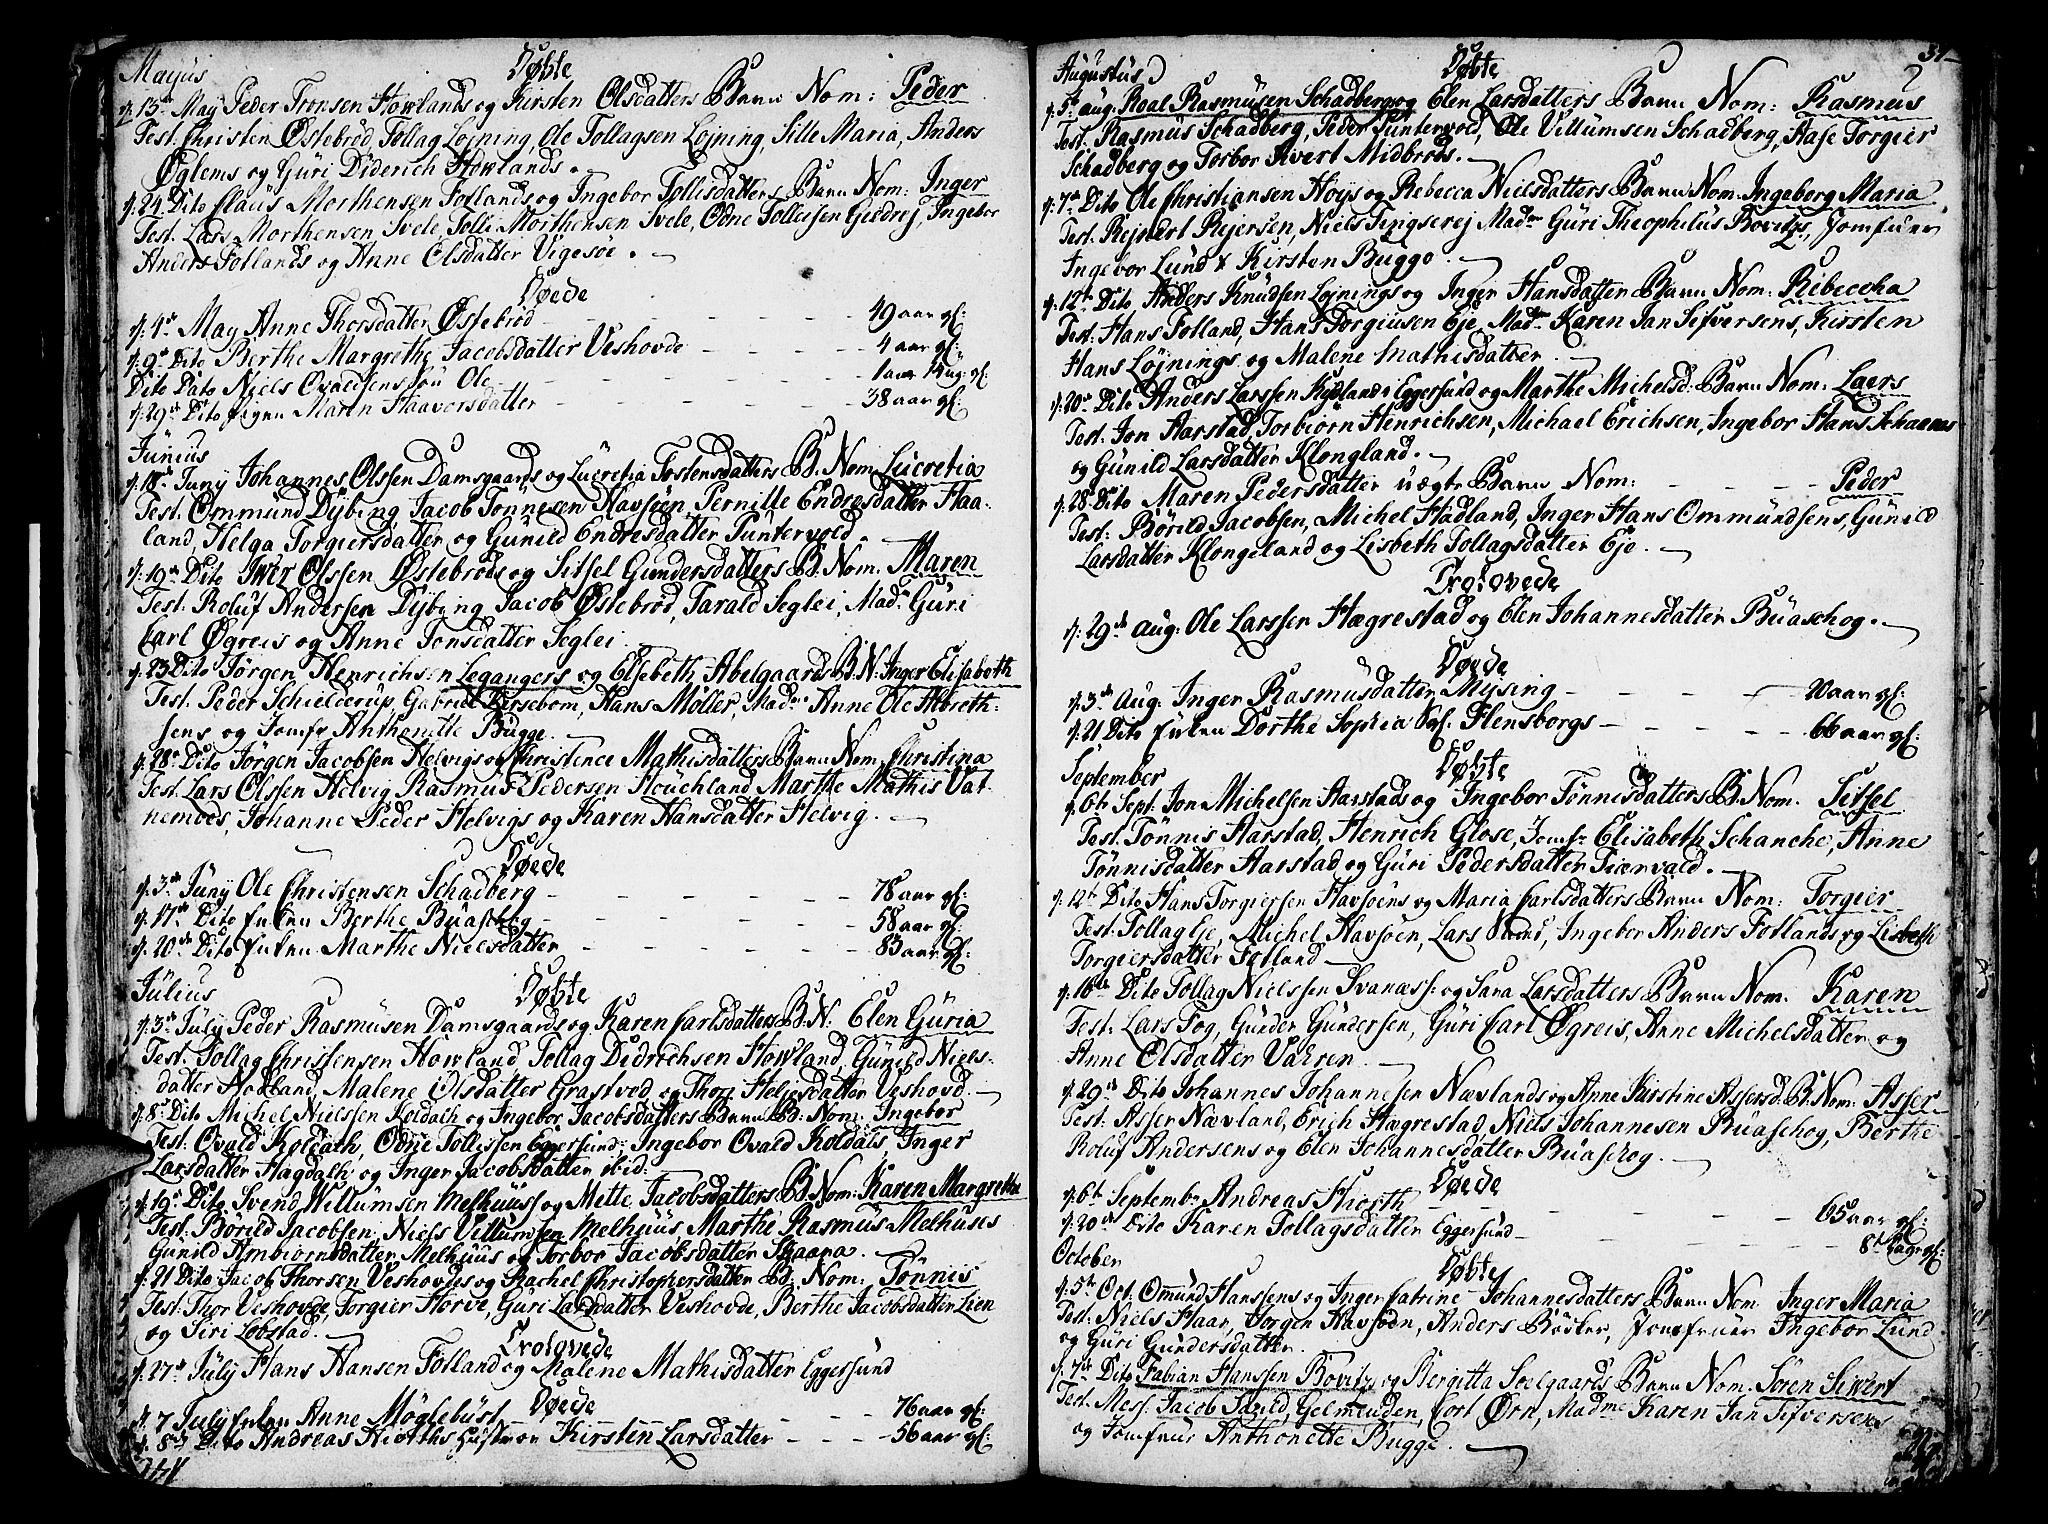 Mayus Døbte
d. 13de May Peder Tronsen Howlands og Kirsten Olsdatters Barn Nom: Peder
Test. Christen Østebrød, Tollag Løjning, Ole Tollagsen Løjning, Sille Maria, Anders
Øglems og Guri Diderich Howlands.
d. 24. Dito Claus Morthensen Fotlands og Ingebor Tollisdatters Barn Nom: Inger
Test. Lars Morthensen Svele, Tolli Morthensen Svele, Odne Tolleisen Giedrej, Ingebor
Anders Fotlands og Anne Olsdatter Vigesøe.
Døede
d. 4de May Anne Thorsdatter Østebrød 49 aar gl:
d. 9de Dito Berthe Margrethe Jacobsdatter Veshovde 4 aar gl:
Dito Dato Niels Ovaldsens søn Ole 1 aar gl:
d. 29de Dito Maren Haavorsdatter 38 aar gl:
Junius
d. 18de Juny Johannes Olssen Damsgaards og Lucretia Tostensdatters B. Nom Lucretia
Test. Ommund Dybing, Jacob Tønnesen Havsøen, Pernille Endresdatter Haa-
land, Helga Torgiersdatter og Gunild Endresdatter Puntervold.
d. 19de Dito Iwer Olssen Østebrøds og Sitsel Gundersdatters B. Nom. Maren
Test. Roluf Andersen Dybing, Jacob Østebrød, Tarald Seglei, Mad. Guri
Carl Øgreis og Anne Tonsdatter Seglei.
d. 23 Dito Jørgen Henrichsen Legangers og Elsebeth Abelgaards B. N. Inger Elisabeth
Test. Peder Schielderup, Gabriel Kirsebom, Hans Møller, Mad. Anne Ole Abreth-
sens og Jomfr Anthonette Bugge.
d. 28de Dito Jørgen Jacobsen Helvigs og Christence Mathisdatters Barn Nom. Christina
Test. Lars Olssen Helvig Rasmus Pedersen Houchland Marthe Mathis Vat-
nemoes, Johanne Peder Helvigs og Karen Hansdatter Helvig.
Døede
d. 3de Juny Ole Christensen Schadberg 78 aar gl:
d. 17de Dito Enken Berthe Buaschog 58 aar gl:
d. 20de Dito Enken Marthe Nielsdatter 83 aar gl:
Julius Døbte
d. 3de July Peder Rasmusen Damsgaards og Karen Carlsdatters B. N. Elen Guria
Test. Tollag Christensen Howland, Tollag Didrichsen Howland, Gunild Niels-
datter Howland, Malene Olsdatter Grastved og Thori Heljesdatter Veshovd.
d. 8de Dito Michel Nielssen Koldals og Ingebor Jacobsdatters Barn B: Nom: Ingebor
Test. Ovald Koldath, Odne Tollissen Eggersund: Ingebor Ovald Koldals, Inger
Larsdatter Hagdalh og Inger Jacobsdatter ibid:
d. 19de Dito Svend Willumsen Melhuus og Mette Jacobsdatters B. Nom: Karen Margrethe
Test. Børild Jacobsen, Niels Villumsen Melhuus, Marthe Rasmus Melhuses
Gunild Ambiørnsdatter Melhuus og Torbor Jacobsdatter Skaara.
d. 21 Dito Jacob Thorsen Veshovdes og Rachel Christophersdatter B: Nom: Tønnis
Test. Thor Veshovde, Torgier Horve, Guri Larsdatter Veshovde, Berthe Jacobsdatter Lien
og Siri Lobstad.
Trolovede
d. 27de July Hans Hansen Fotland og Malene Mathisdatter Eggersund
Døede
d. 7 July Enken Anne Møglebust 76 aar gl:
d. 8de Dito Andreas Hiorths Hustroe Kirsten Larsdatter 56 aar gl:
37
Augustus Døbte
d. 5te Aug. Roal Rasmusen Schadberg og Elen Larsdatters Barn Nom: Rasmus
Test. Rasmus Schadberg, Peder Puntervold, Ole Villumsen Schadberg, Aase Torgier
Schadberg og Torbor Sivert Midbrøds.
d. 7de Dito Ole Christiansen Høys og Rebecca Nielsdatters Barn Nom. Ingeborg Maria
Test. Rejnert Rejersen, Niels Tengserej Madme Guri Theophilus Bovitz, Jomfruer
Ingebor Lund & Kirsten Bugge.
d. 12te Dito Anders Knudsen Løjnings og Inger Hansdatter Barn Nom: Rebeccha
Test. Hans Fotland, Hans Torgiusen Eje, Madme Karen Jan Sifversens, Kirsten
Hans Løjnings og Malene Mathisdatter.
d. 20de Dito Anders Larssen Eggersund og Marthe Michelsd: Barn Nom: Laers
Test. Jon Aarstad, Torbiørn Henrichsen, Michael Erichsen, Ingebor Hans Schaanas
og Gunild Larsdatter Klongland.
d. 28 Dito Maren Pedersdatter uægte Barn Nom: Peder
Test: Børild Jacobsen, Michel Hadland, Inger Hans Ommundsens, Gunild
Larsdatter Klongeland og Lisbeth Tollagsdatter Eje.
Trolovede
d. 29de Aug: Ole Larssen Hægrestad og Elen Johannesdatter Buaschog.
Døede
d. 3de Aug. Inger Rasmusdatter Mysing aar gl.
d. 21 Dito Enken Dorthe Sophia Sl. Flensborgs 66 aar gl.
September Døbte
d. 6te Sept. Jon Michelsen Aarstads og Ingebor Tønnisdatters B. Nom. Sitsel
Test. Tønnis Aarstad, Henrich Glose, Jomfr Elisabeth Schanche, Anne
Tønnisdatter Aarstad og Guri Pedersdatter Tiernvald.
d. 12te Dito Hans Torgiersen Havsøens og Maria Carlsdatters Barn Nom: Torgier
Test. Tollag Eje, Michel Havsøen, Lars Sund, Ingebor Anders Fotlands og Lisbeth
Torgiersdatter Fotland
d. 16de Dito Tollag Nielssen Svanæss: og Sara Larsdatters Barn Nom. Karen
Test: Lars Fog, Gunder Gundersen, Guri Carl Øgreis, Anne Michelsdatter og
Anne Olsdatter Vahren.
d. 29de Dito Johannes Johannesen Nævlands og Anne Kirstine Assersd. B. Nom: Asser
Test: Asser Nævland, Erich Hægrestad, Niels Johannesen Buaschog, Berthe
Roluf Andersens og Elen Johannesdatter Buaschog.
Døede
d. 6te Septembr Andreas Hiorth 65 aar gl:
d. 20de Dito Karen Tollagsdatter Eggersund 8te dage gl:
October Døbte
d. 5te Oct. Omund Hanssens og Inger Catrine Johannesdatters Barn Nom. Inger Maria
Test: Niels Haar, Jørgen Havsøen, Anders Bøsler, Jomfruer Ingebor Lund
og Guri Gundersdatter.
d. 7de Dito Fabian Hanssen Bovitz og Bergitta Soelgaards Barn Nom. Søren Siwert
Test. Mess. Jacob Gelmuiden, Cort Ørn, Madme Karen Jan Sifversens
og Jomfrue Anthonette Bugge.